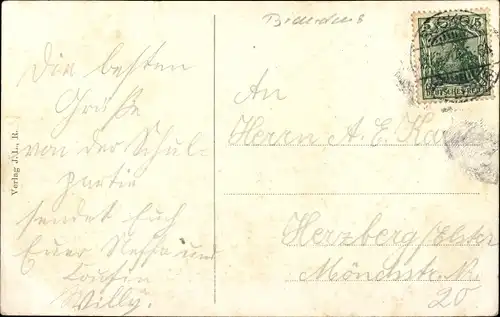 Die besten
Grüße
von der Schul-
partie
sendet Euch
Euer Neffe und
Cousin
Willy.
Verlag J. L., R.
5 5
DEUTSCHES REICH
An
Herrn A. E.
Herzberg/Elster
Mönchstr.
20